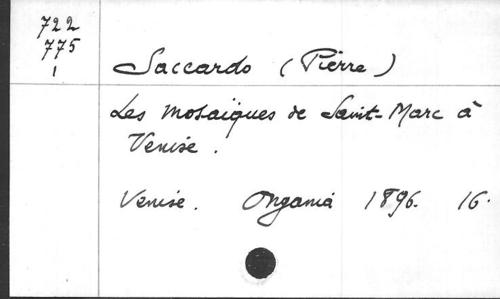 722
775
1
Saccardo (Pierre)
Les mosaïques de Saint-Marc à
Venise.
Venise. Ongania 1896. 16.